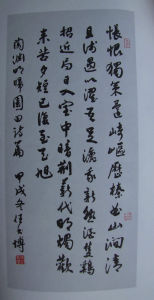 悵恨獨策還崎嶇歷榛曲山澗清
且淺遇以濯吾足漉我新熟酒隻鷄
招近局日入室中暗荊薪代明燭歡
来苦夕短已復至天旭
陶渊明歸園田詩篇 甲戌冬